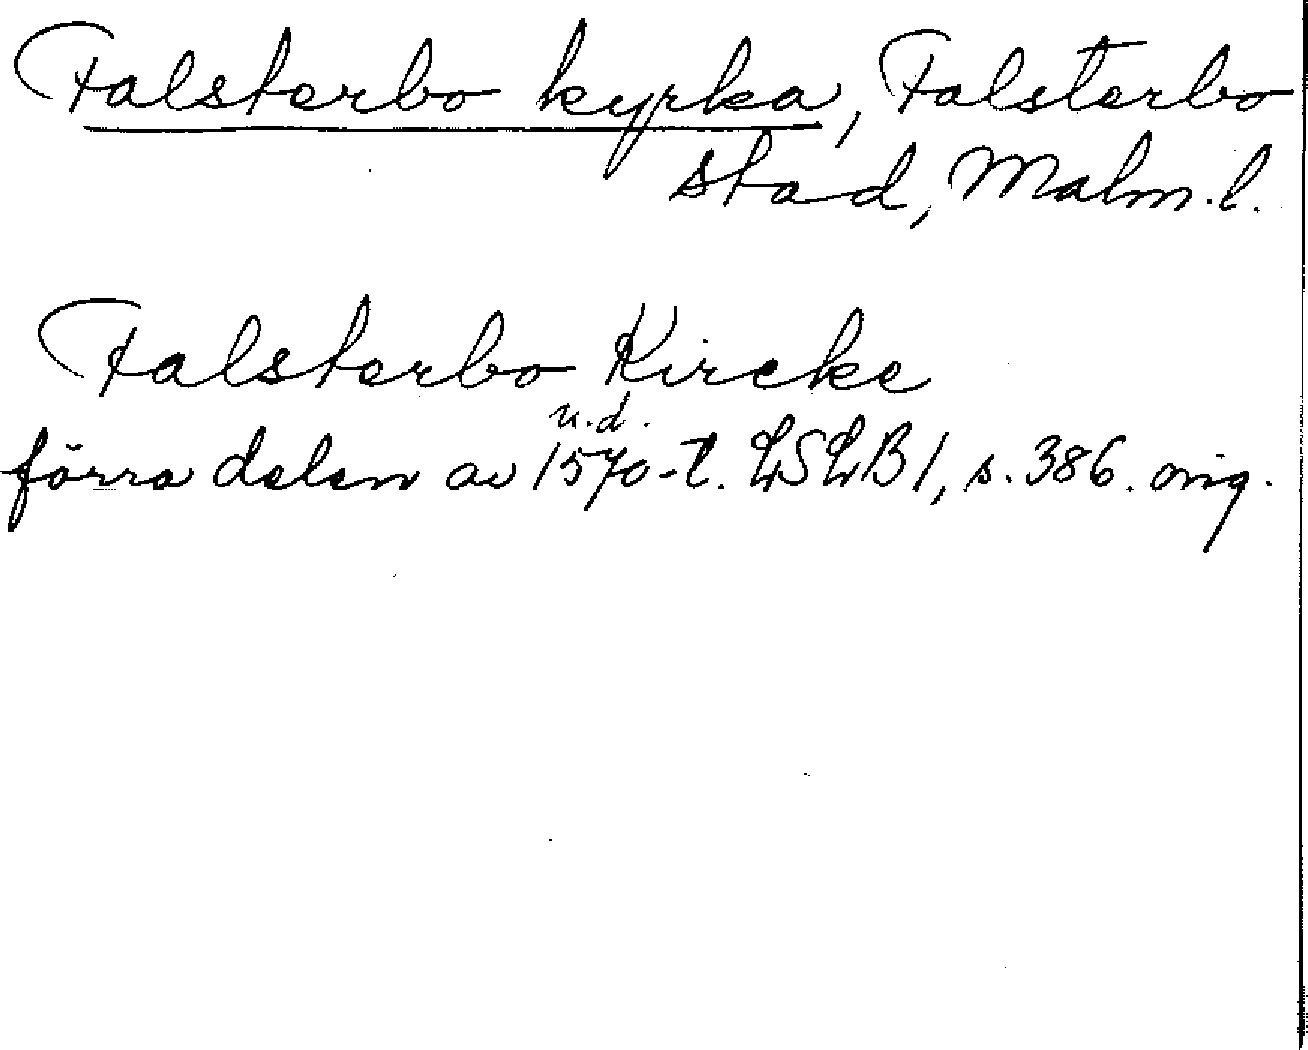 Falsterbo kyrka, Falsterbo
stad, Malm. l.
Falsterbo Kircke
u.d.
förra delen av 1570-t. LSLB I, s. 386. orig.